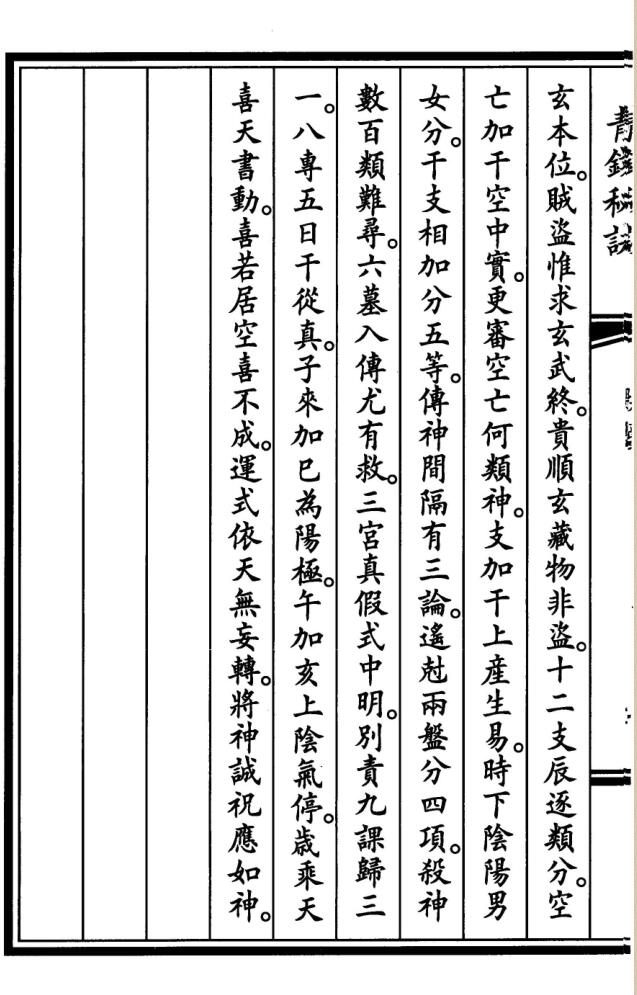 玄本位。賊盜惟求玄武終。貴順玄藏物非盜。十二支辰逐類分。空
亡加干空中實。更審空亡何類神。支加干上產生易。時下陰陽男
女分。干支相加分五等。傳神間隔有三論。遙尅兩盤分四項。殺神
數百類難尋。六墓入傳尤有救。三宮真假式中明。別責九課歸三
一。八專五日干從真。子來加巳為陽極。午加亥上陰氣停。歲乘天
喜天書動。喜若居空喜不成。運式依天無妄轉。將神誠祝應如神。